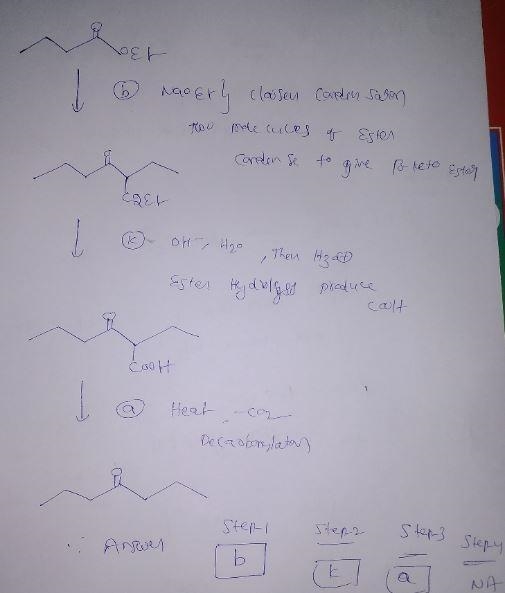 O
OEt
(b) NaOEt} claisen Condensation
two molecules of Ester
Condense to give β-keto Ester
O
CO2Et
(k) - OH-, H2O, Then H3O⊕
Ester Hydrolysis produce
COOH
O
COOH
(a) Heat, -CO2
Decarboxylation
O
∴ Answer
Step-1 Step-2 Step-3 Step-4
b k a NA